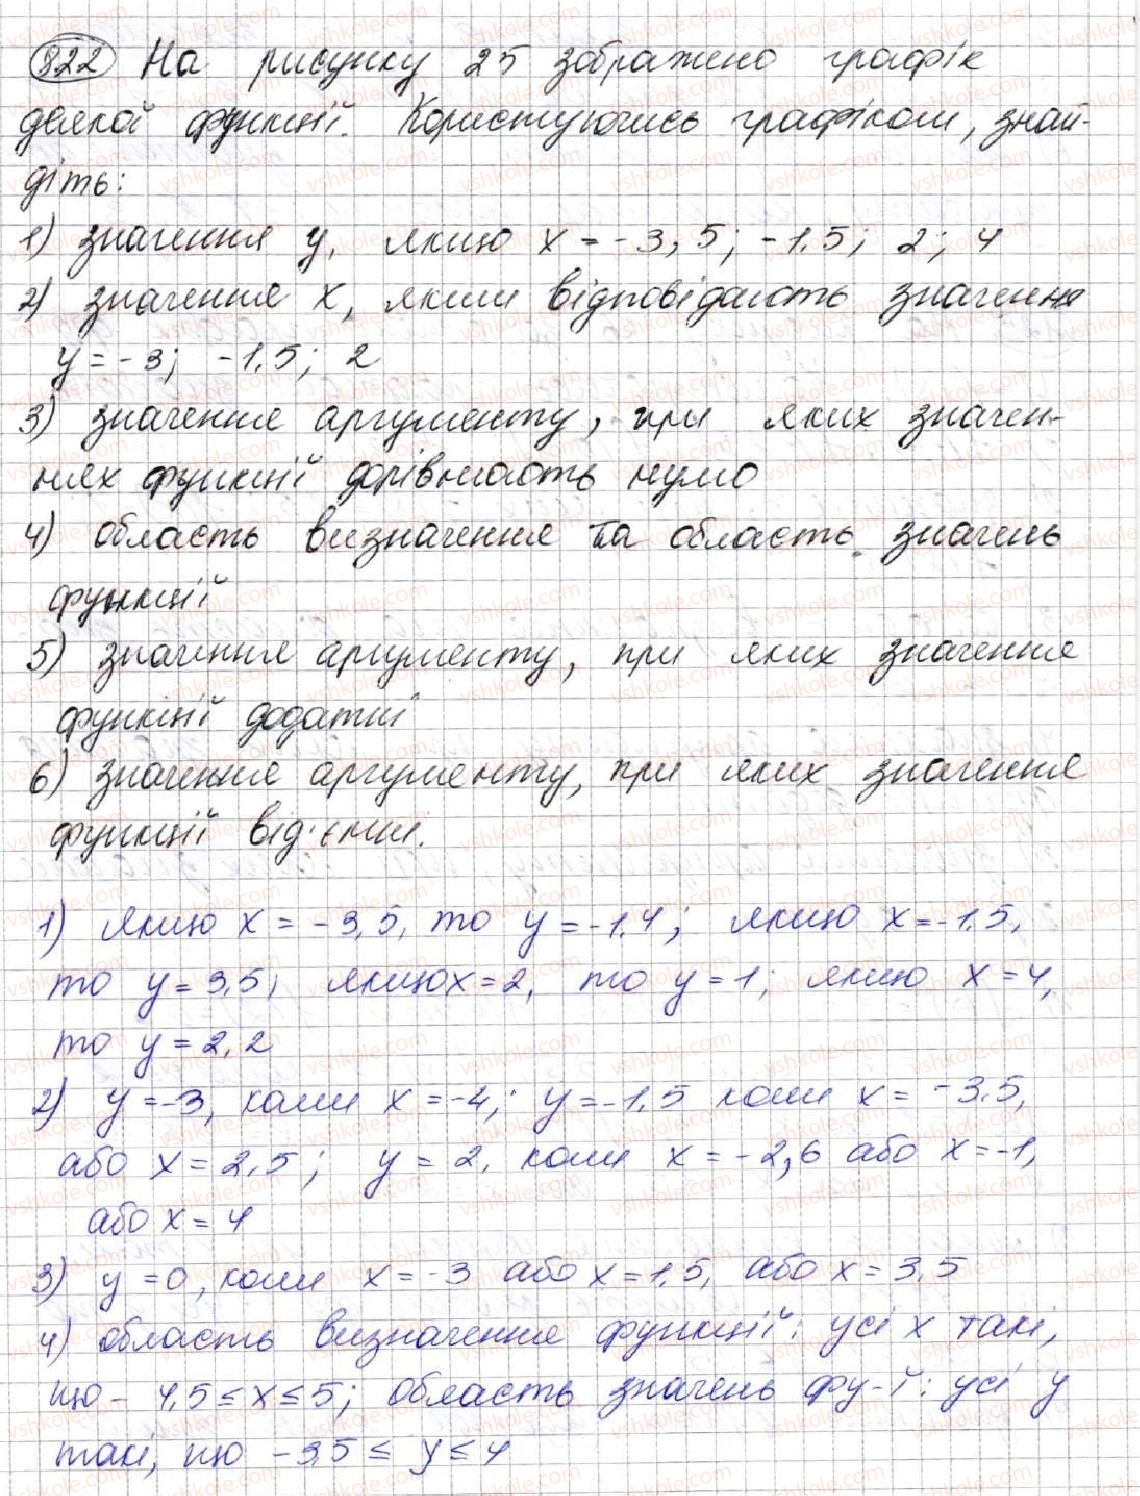 822 На рисунку 25 зображено графік
деякої функції. Користуючись графіком, знай-
діть:
1) значення y, якщо x = -3,5; -1,5; 2; 4
2) значення x, яким відповідають значення
y = -3; -1,5; 2
3) значення аргументу, при яких значен-
нях функції дорівнюють нулю
4) область визначення та область значень
функції
5) значення аргументу, при яких значення
функції додатні
6) значення аргументу, при яких значення
функції від'ємні.
1) якщо x = -3,5, то y = -1,4; якщо x = -1,5,
то y = 3,5; якщо x = 2, то y = 1; якщо x = 4,
то y = 2,2
2) y = -3, коли x = -4; y = -1,5 коли x = -3,5,
або x = 2,5; y = 2, коли x = -2,6 або x = -1,
або x = 4
3) y = 0, коли x = -3 або x = 1,5, або x = 3,5
4) область визначення функції: усі x такі,
що - 4,5 ≤ x ≤ 5; область значень фу-ї: усі y
такі, що -3,5 ≤ y ≤ 4